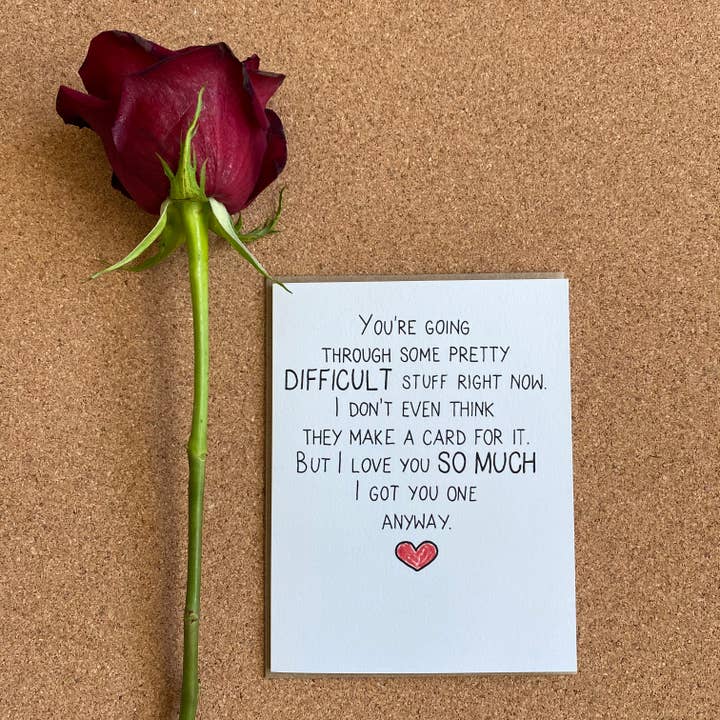 You're going
through some pretty
DIFFICULT stuff right now.
I don't even think
they make a card for it.
But I love you SO MUCH
I got you one
anyway.